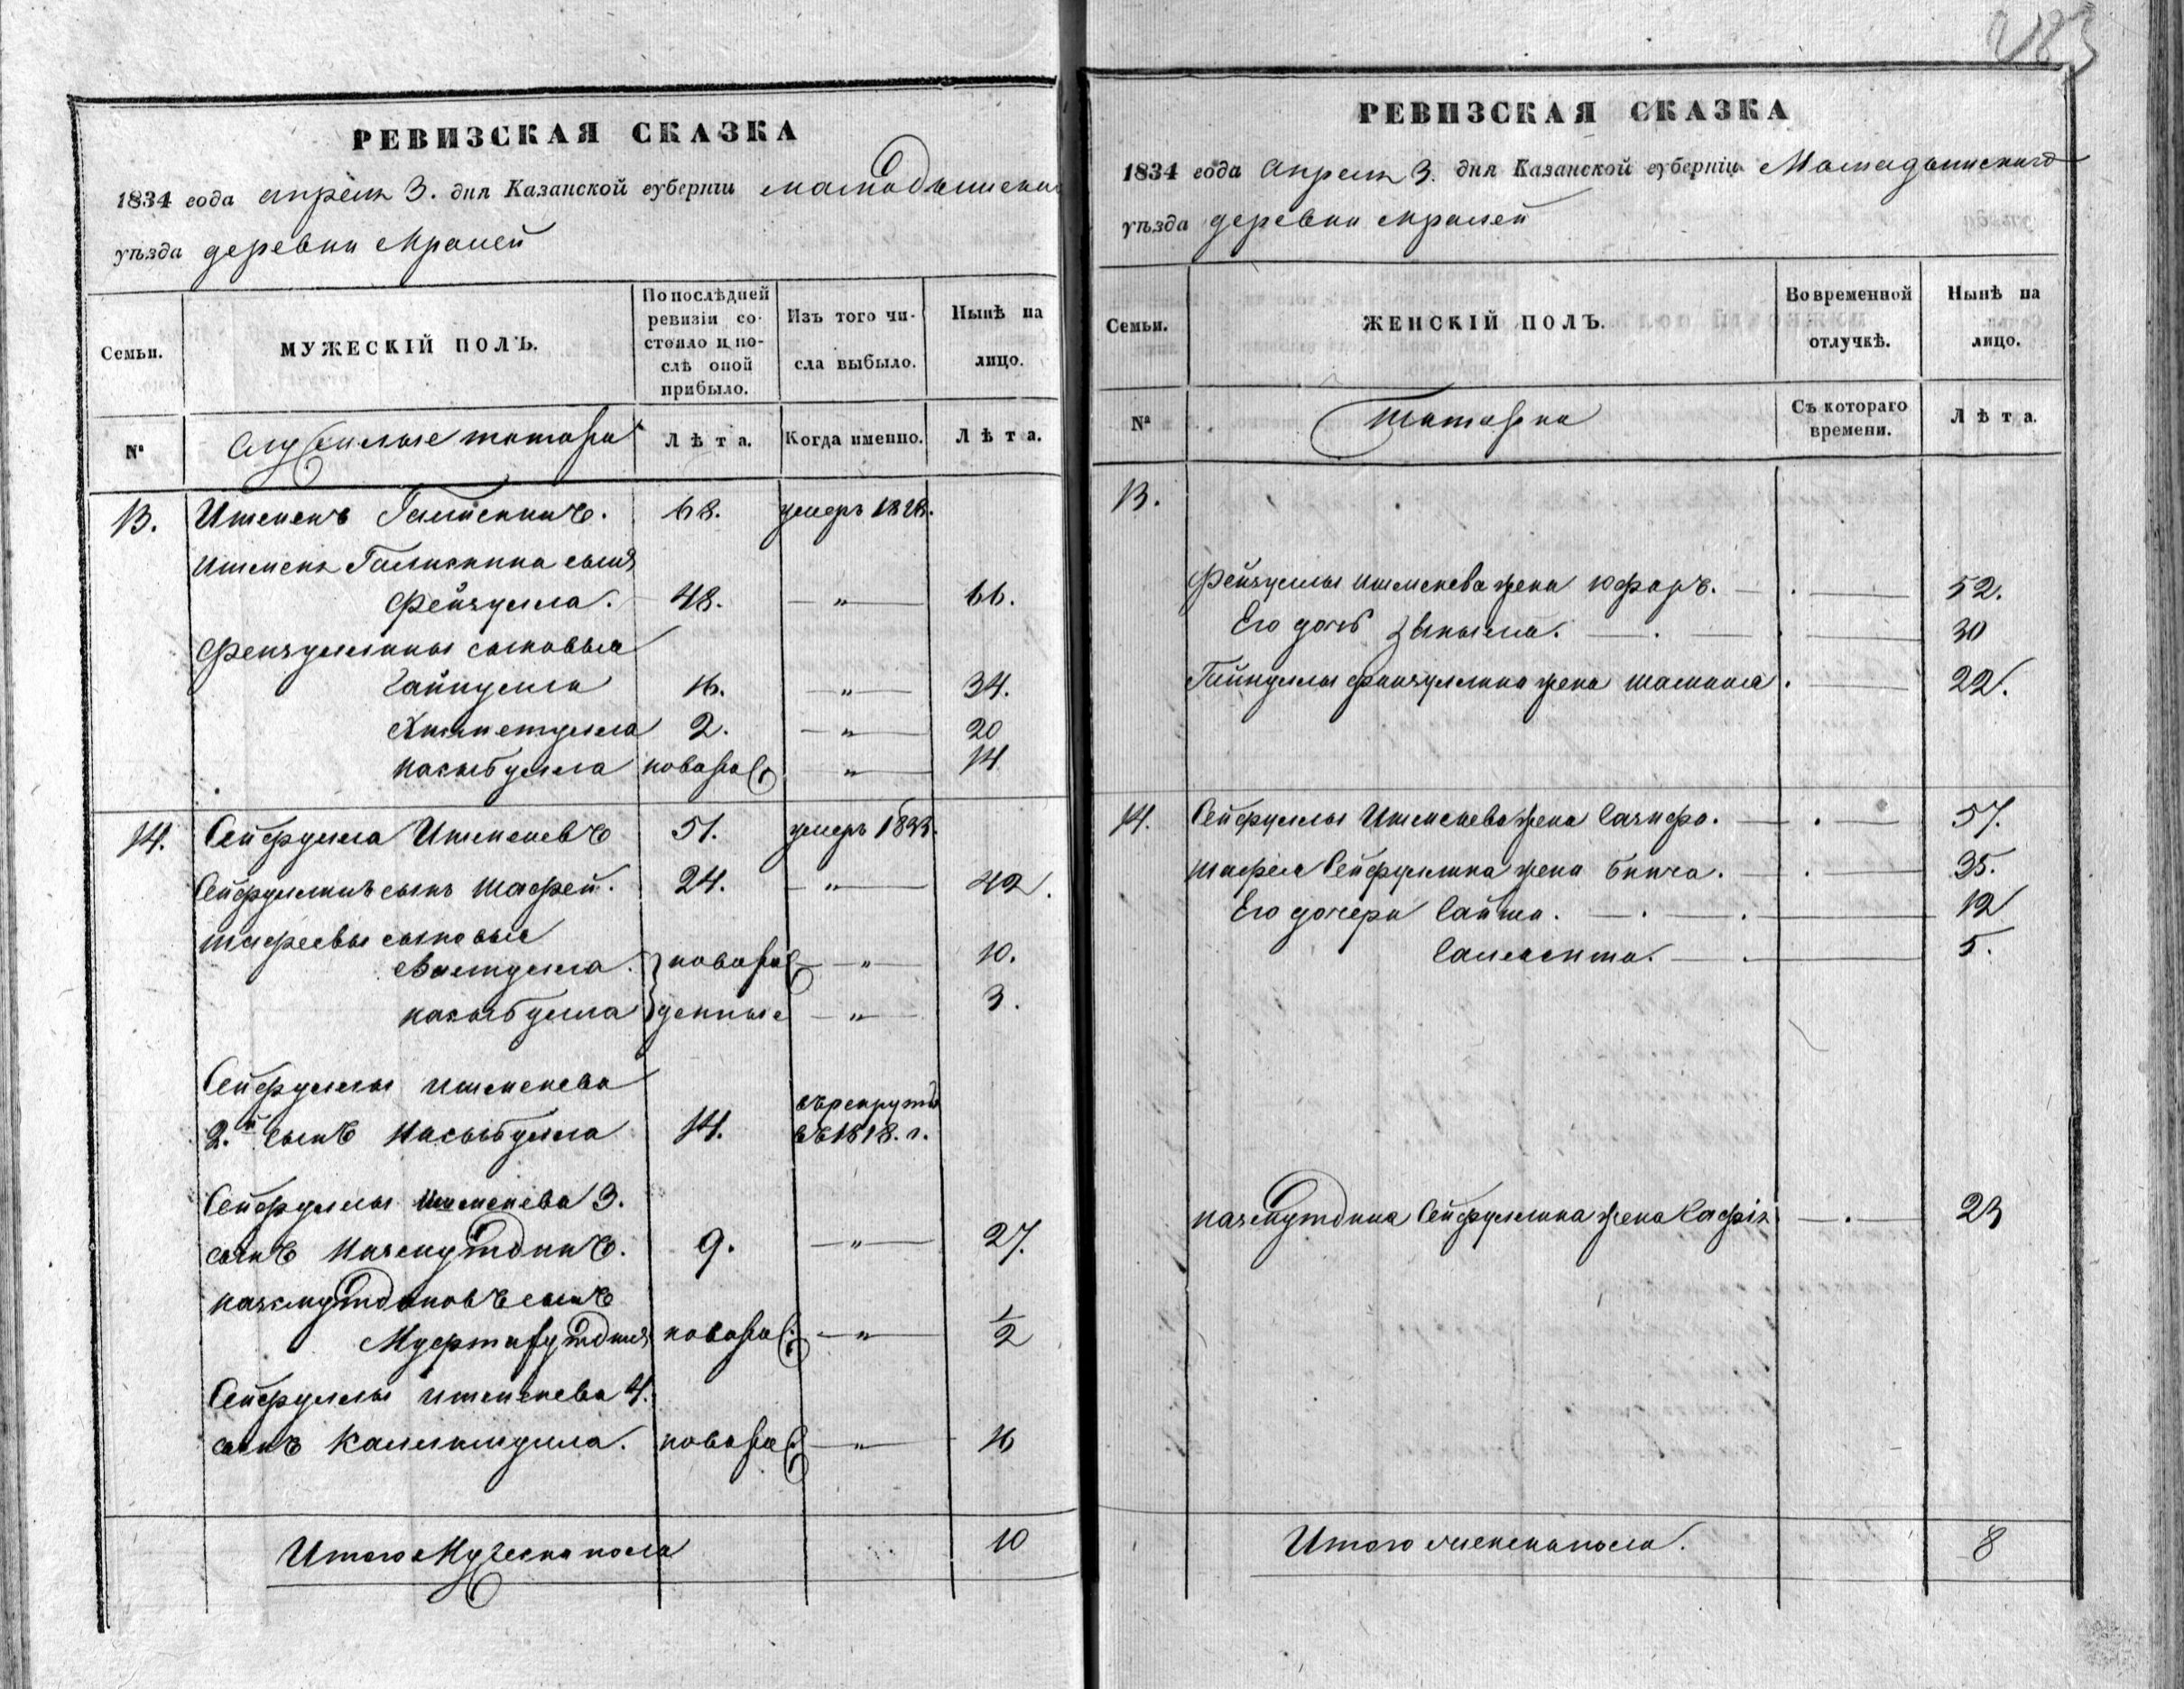 483
РЕВИЗСКАЯ СКАЗКА
1834 года апреля 3. дня Казанской губерніи мамадышска
уѣзда деревни
Семьи.
МУЖЕСКІЙ ПОЛЪ.
По послѣдней ревизіи состояло и послѣ оной прибыло.
Изъ того числа выбыло.
Нынѣ на лицо.
№
Служилые татара
Лѣта.
Когда именно.
Лѣта.
13. Ишменъ 68. умеръ 1828.
Ишмена сынъ
Фейзулла. 48. — „ — 66.
Фейзуллины сыновья
Гайнулла 16. — „ — 34.
Хикметулла 2. — „ — 20
Насыбулла новорож — „ — 14
14. Сейфулла Ишменевъ 51. умеръ 1833.
Сейфуллинъ сынъ Шафей. 24. — „ — 42.
Шафеевы сыновья
новорож — „ — 10.
Насыбулла денные — „ — 3.
Сейфуллы Ишменева
2.й сынъ Насыбулла 14. въ рекруты въ 1818. г.
Сейфуллы Ишменева 3.
сынъ Назмутдинъ. 9. — „ — 27.
Назмутдиновъ сынъ
новорож — „ — 1/2
Сейфуллы Ишменева 4.
сынъ новорож — „ — 16
Итого Мужеска пола 10
РЕВИЗСКАЯ СКАЗКА
1834 года Апреля 3. дня Казанской губерніи Мамадышскаго
уѣзда деревни
Семьи.
ЖЕНСКІЙ ПОЛЪ.
Во временной отлучкѣ.
Нынѣ на лицо.
№
Татарка
Съ котораго времени.
Лѣта.
13.
Фейзуллы Ишменева жена Юфаръ. 52.
Его дочь 30
Гайнуллы Фейзуллина жена 22.
14. Сейфуллы Ишменева жена 57.
Шафея Сейфуллина жена Бикча. 35.
Его дочери Сайма. 12
5.
Назмутдина Сейфуллина жена 23
Итого женска пола. 8